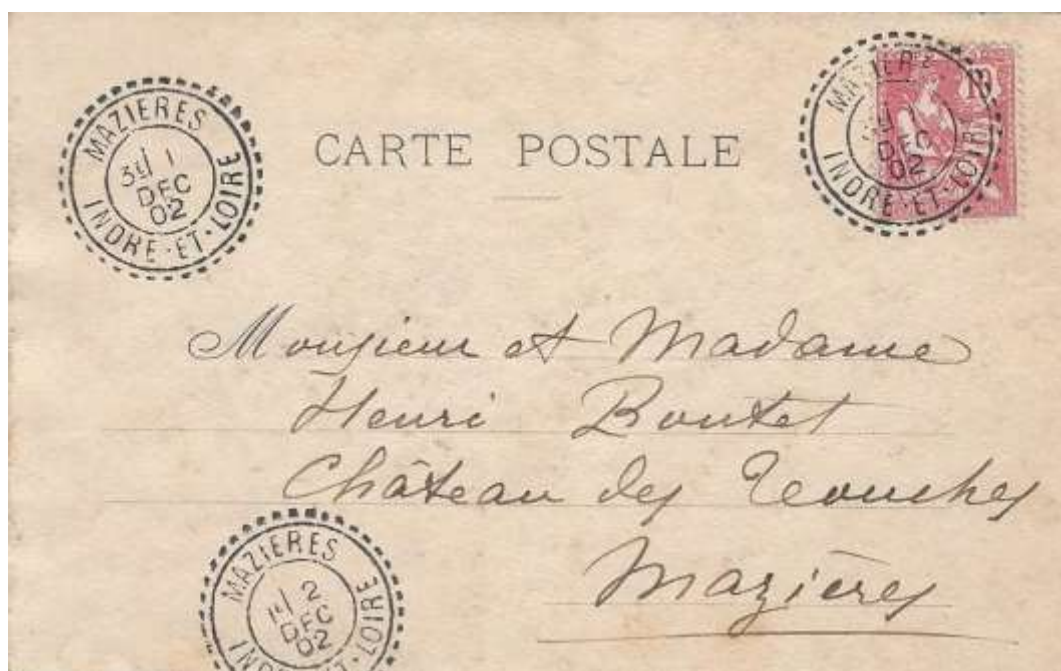 MAZIERES
1
DEC
02
INDRE-ET-LOIRE
CARTE POSTALE
MAZIERE
DEC
02
INDRE-ET-LOIRE
10
Monsieur et Madame
Henri Boutet
Château des Touches
Mazières
MAZIERES
2
DEC
02
LOIRE